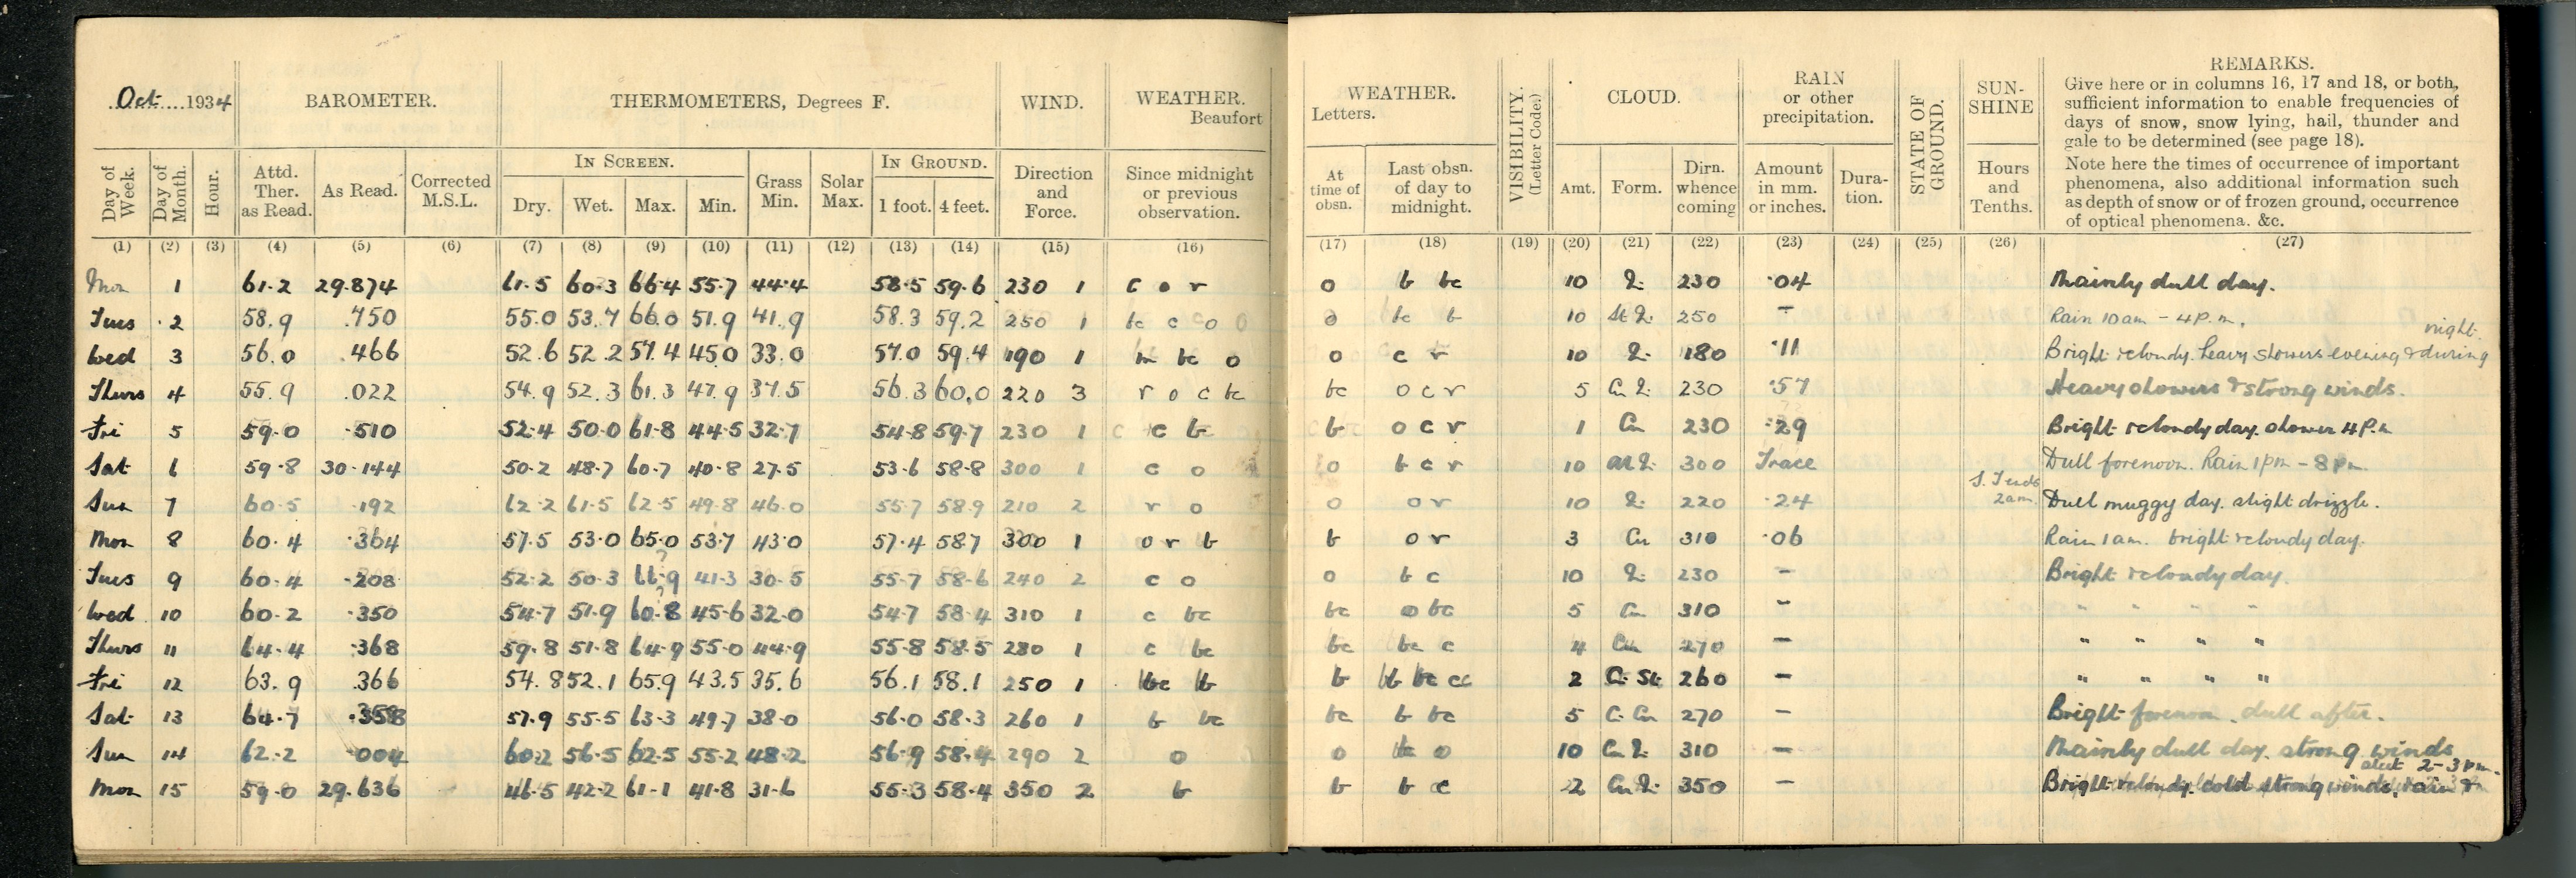 Oct 1934 BAROMETER. THERMOMETERS, Degrees F. WIND. WEATHER. Beaufort
Day of Week. Day of Month. Hour. Attd. Ther. as Read. As Read. Corrected M.S.L. IN SCREEN. Dry. Wet. Max. Min. Grass Min. Solar Max. IN GROUND. 1 foot. 4 feet. Direction and Force. Since midnight or previous observation.
(1) (2) (3) (4) (5) (6) (7) (8) (9) (10) (11) (12) (13) (14) (15) (16)
Mon 1 61.2 29.874 61.5 60.3 66.4 55.7 44.4 58.5 59.6 230 1 c o r
Tues 2 58.9 .750 55.0 53.7 66.0 51.9 41.9 58.3 59.2 250 1 bc c o
Wed 3 56.0 .466 52.6 52.2 57.4 45.0 33.0 57.0 59.4 190 1 m bc o
Thurs 4 55.9 .022 54.9 52.3 61.3 47.9 37.5 56.3 60.0 220 3 r o c bc
Fri 5 59.0 .510 52.4 50.0 61.8 44.5 32.7 54.8 59.7 230 1 c bc
Sat 6 59.8 30.144 50.2 48.7 60.7 40.8 27.5 53.6 58.8 300 1 c o
Sun 7 60.5 .192 62.2 61.5 62.5 49.8 46.0 55.7 58.9 210 2 r o
Mon 8 60.4 .364 57.5 53.0 65.0 53.7 43.0 57.4 58.7 300 1 o r b
Tues 9 60.4 .208 52.2 50.3 41.3 30.5 55.7 58.6 240 2 c o
Wed 10 60.2 .350 54.7 51.9 60.8 45.6 32.0 54.7 58.4 310 1 c bc
Thurs 11 64.4 .368 59.8 51.8 64.9 55.0 44.9 55.8 58.5 280 1 c bc
Fri 12 63.9 .366 54.8 52.1 65.9 43.5 35.6 56.1 58.1 250 1 bc b
Sat 13 64.7 .358 57.9 55.5 63.3 49.7 38.0 56.0 58.3 260 1 b bc
Sun 14 62.2 .004 60.2 56.5 62.5 55.2 48.2 56.9 58.4 290 2 o
Mon 15 59.0 29.636 46.5 42.2 61.1 41.8 31.6 55.3 58.4 350 2 b
WEATHER. Letters. VISIBILITY. (Letter Code.) CLOUD. RAIN or other precipitation. STATE OF GROUND. SUN-SHINE REMARKS.
Give here or in columns 16, 17 and 18, or both,
sufficient information to enable frequencies of
days of snow, snow lying, hail, thunder and
gale to be determined (see page 18).
Note here the times of occurrence of important
phenomena, also additional information such
as depth of snow or of frozen ground, occurrence
of optical phenomena. &c.
At time of obsn. Last obsn. of day to midnight. Amt. Form. Dirn. whence coming Amount in mm. or inches. Dura-tion. Hours and Tenths.
(17) (18) (19) (20) (21) (22) (23) (24) (25) (26) (27)
o b bc 10 230 .04 Mainly dull day.
o bc b 10 250 - Rain 10am - 4P.m.
o c r 10 180 .11 Bright & cloudy. heavy showers evening & during night.
bc o c r 5 230 .57 Heavy showers & strong winds.
b o c r 1 Cu 230 .29 Bright & cloudy day. shower 4P.m
o b c r 10 300 Trace Dull forenoon. Rain 1pm - 8pm.
o o r 10 220 .24 S. Ends 2am. Dull muggy day. slight drizzle.
b o r 3 Cu 310 .06 Rain 1am. bright & cloudy day.
o b c 10 230 - Bright & cloudy day.
bc o bc 5 Cu 310 - " " " "
bc bc c 4 Cu 270 - " " " "
b 2 Ci St 260 - " " " "
bc b bc 5 270 - Bright forenoon. dull after.
o bc o 10 310 - Mainly dull day. strong winds
b b c 2 350 - Bright & cloudy. cold strong winds. rain & sleet 2-3pm.